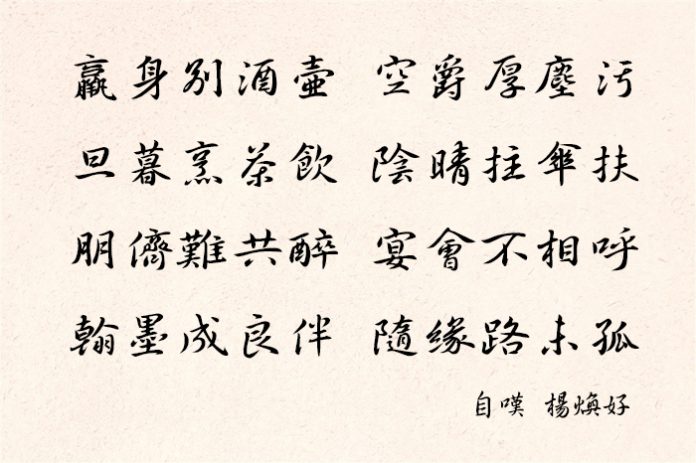 羸身別酒壺 空爵厚塵污
旦暮烹茶飲 陰晴拄傘扶
朋儕難共醉 宴會不相呼
翰墨成良伴 隨緣路未孤
自嘆 楊煥好